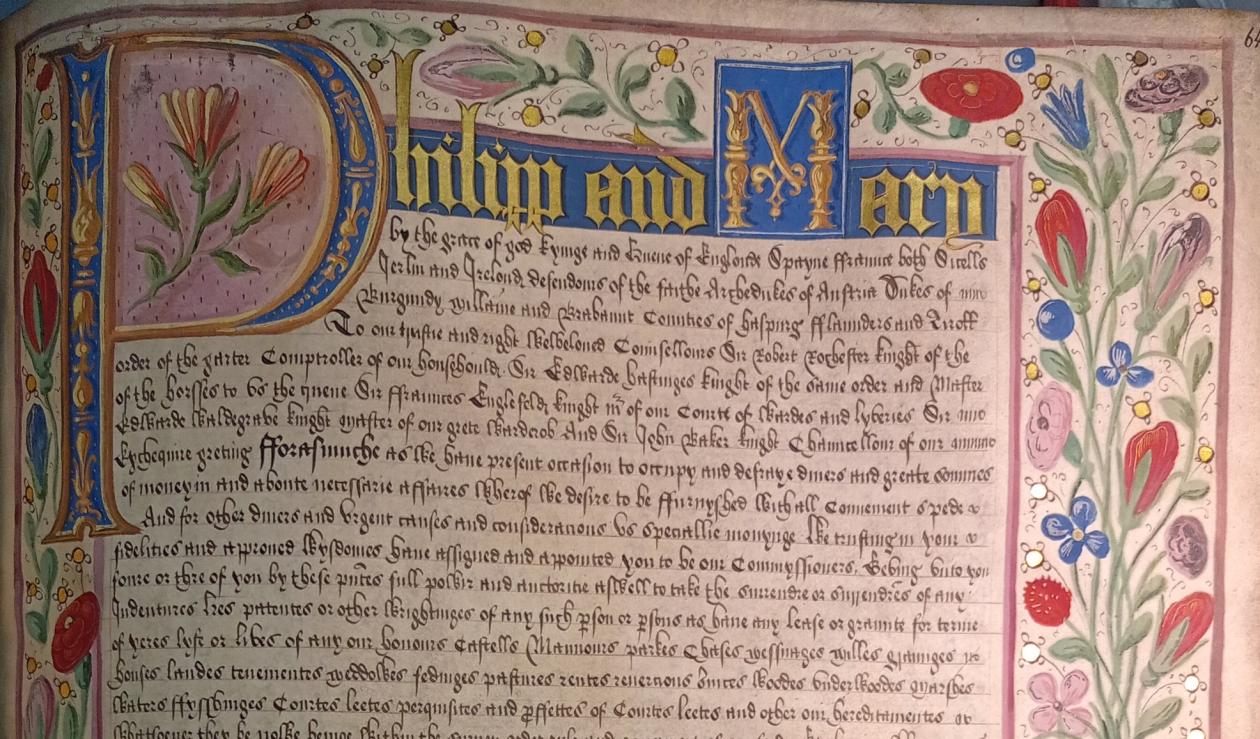 64
Philipp and Mary
by the grace of god kynge and Quene of Englonde Spayne ffraunce both Sicells
Jerlm and Irelond, defendours of the faithe Archedukes of Austria Dukes of
Burgundy Millaine and Brabannt Counties of haspurg fflaunders and Tiroll
To our trustie and right Welbeloued Counsellours Sir Robert Rochester knight of the
order of the garter Comptroller of our householde, Sir Edwarde hastinges knight of the same order and Master
of the horsses to vs the quene Sir ffraunces Englefeld, knight mr of our Courte of Wardes and lyueries Sir
Edwarde Waldegrabe knight master of our grete Warderob And Sir John Baker knight Chauncellour of our
Exchequire greting fforasmuche as We haue present occasion to occupy and defraye diuers and greate sommes
of money in and aboute necessarie affaires Wherof We desire to be ffurnyshed With all Conuenient spede
And for other diuers and vrgent causes and consideracions vs speciallie mouynge We trusting in your
fidelities and approued Wysdomes haue assigned and apointed you to be our Commyssioners, Geving vnto you
foure or thre of you by these pntes full power and auctoritie asWell to take the surrendre or surrendres of any
Indentures lres patentes or other Wrightinges of any such pson or psons as haue any lease or graunte for terme
of yeres lyfe or liues of any our honours Castells Mannours parkes Chases messuages milles graunges
houses landes tenementes meddowes fedinges pastures rentes reuercions Woodes vnderWoodes marshes
Waters ffysshinges Courtes leetes perquisites and pffettes of Courtes leetes and other our hereditamentes
Whatsoeuer they be